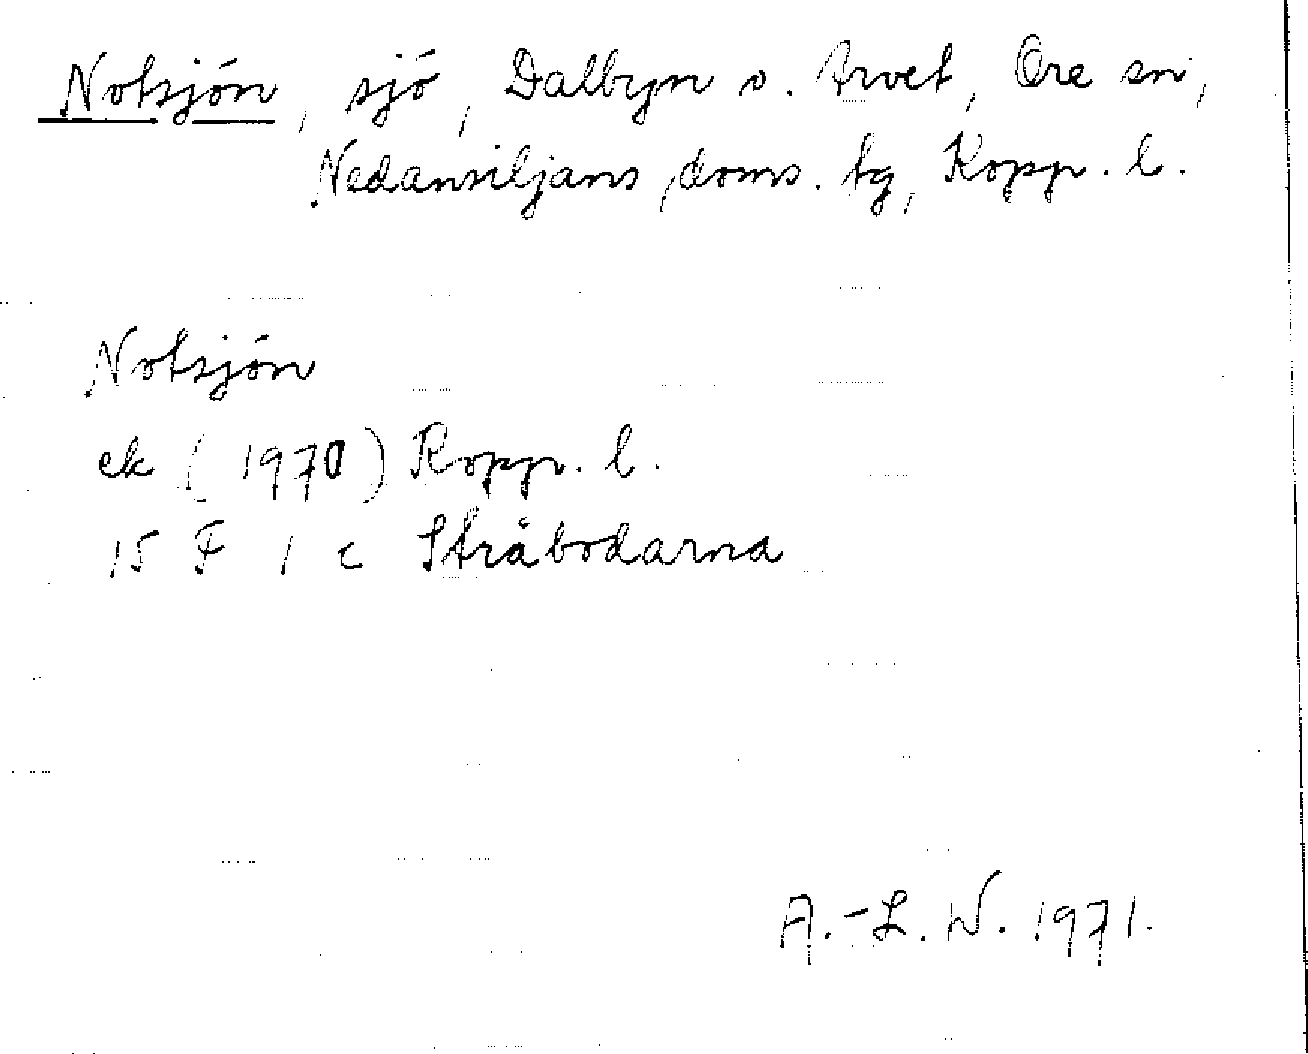 Notsjön, sjö, Dalbyn o. Arvet, Ore sn,
Nedansiljans doms. tg, Kopp. l.
Notsjön
ek (1970) Kopp. l.
15 F 1 c Stråbodarna
A.-L. W. 1971.